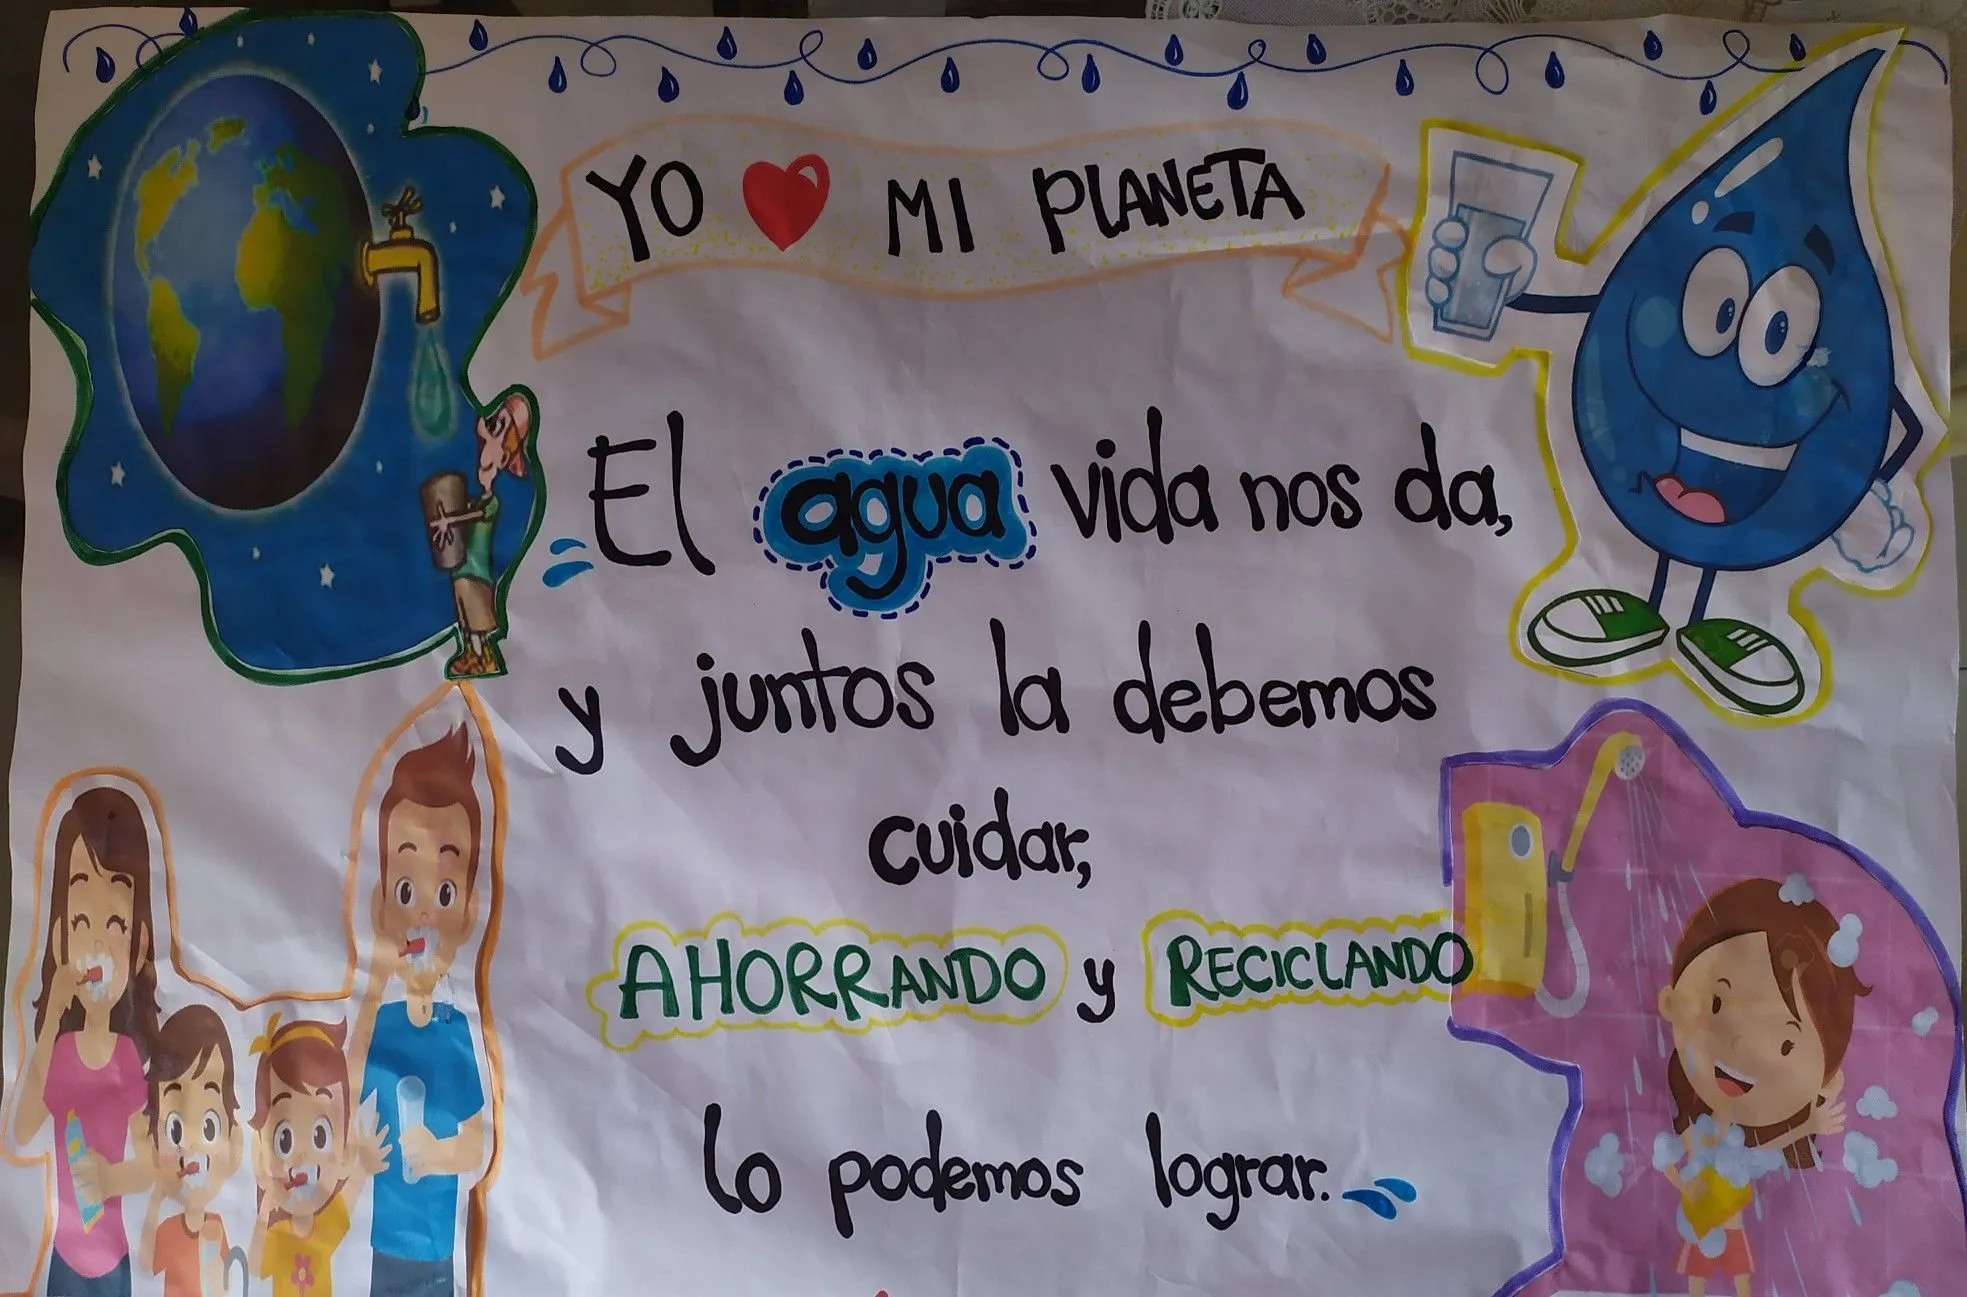 YO ❤ MI PLANETA
El agua vida nos da,
y juntos la debemos
cuidar,
AHORRANDO y RECICLANDO
lo podemos lograr.